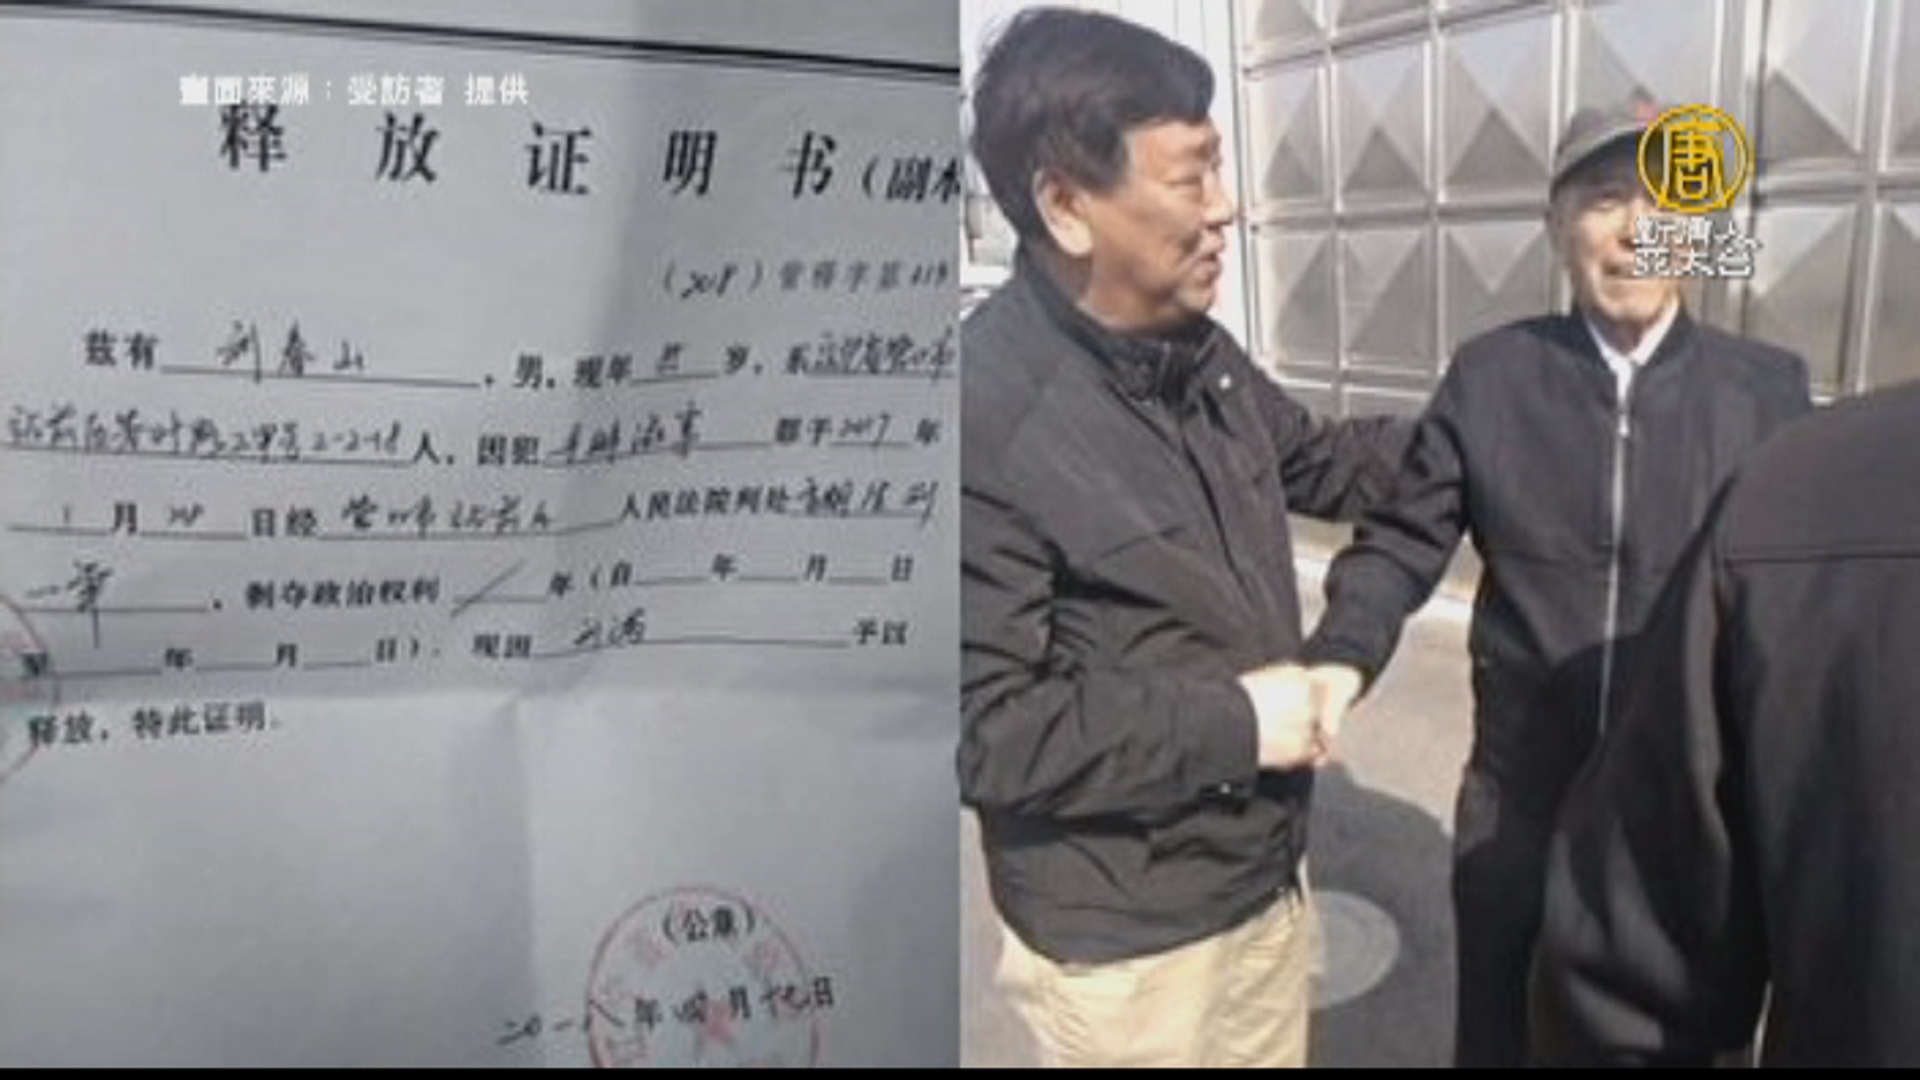 畫面來源：受訪者 提供
释放证明书（副本
（2018）营释字第
兹有 刘春山 ，男，现年 岁，系辽宁省营口市
站前区 2-2-18人，因犯 寻衅滋事 罪于2017年
1月 日经 营口市站前区 人民法院判处有期徒刑
一年 ，剥夺政治权利 / 年（自 年 月 日
至 年 月 日）。现因 刑满 予以
释放，特此证明。
（公章）
二〇一八年四月 日
唐
新唐人
亚太台